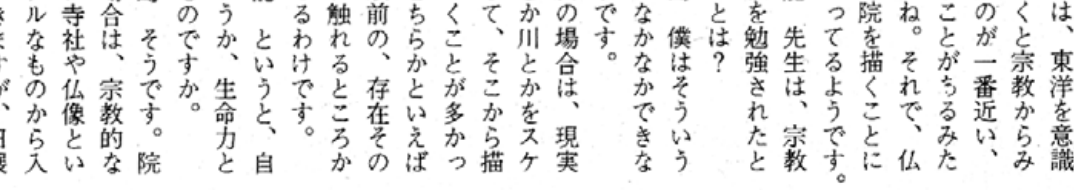 は、東洋を意識
くと宗教からみ
のが一番近い、
ことがあるみた
ね。それで、仏
院を描くことに
ってるようです。
先生は、宗教
を勉強されたと
とは?
僕はそういう
なかなかできな
です。
の場合は、現実
か川とかをスケ
て、そこから描
くことが多かっ
ちらかといえば
前の、存在その
触れるところか
るわけです。
というと、自
うか、生命力と
のですか。
そうです。院
合は、宗教的な
寺社や仏像とい
ルなものから入